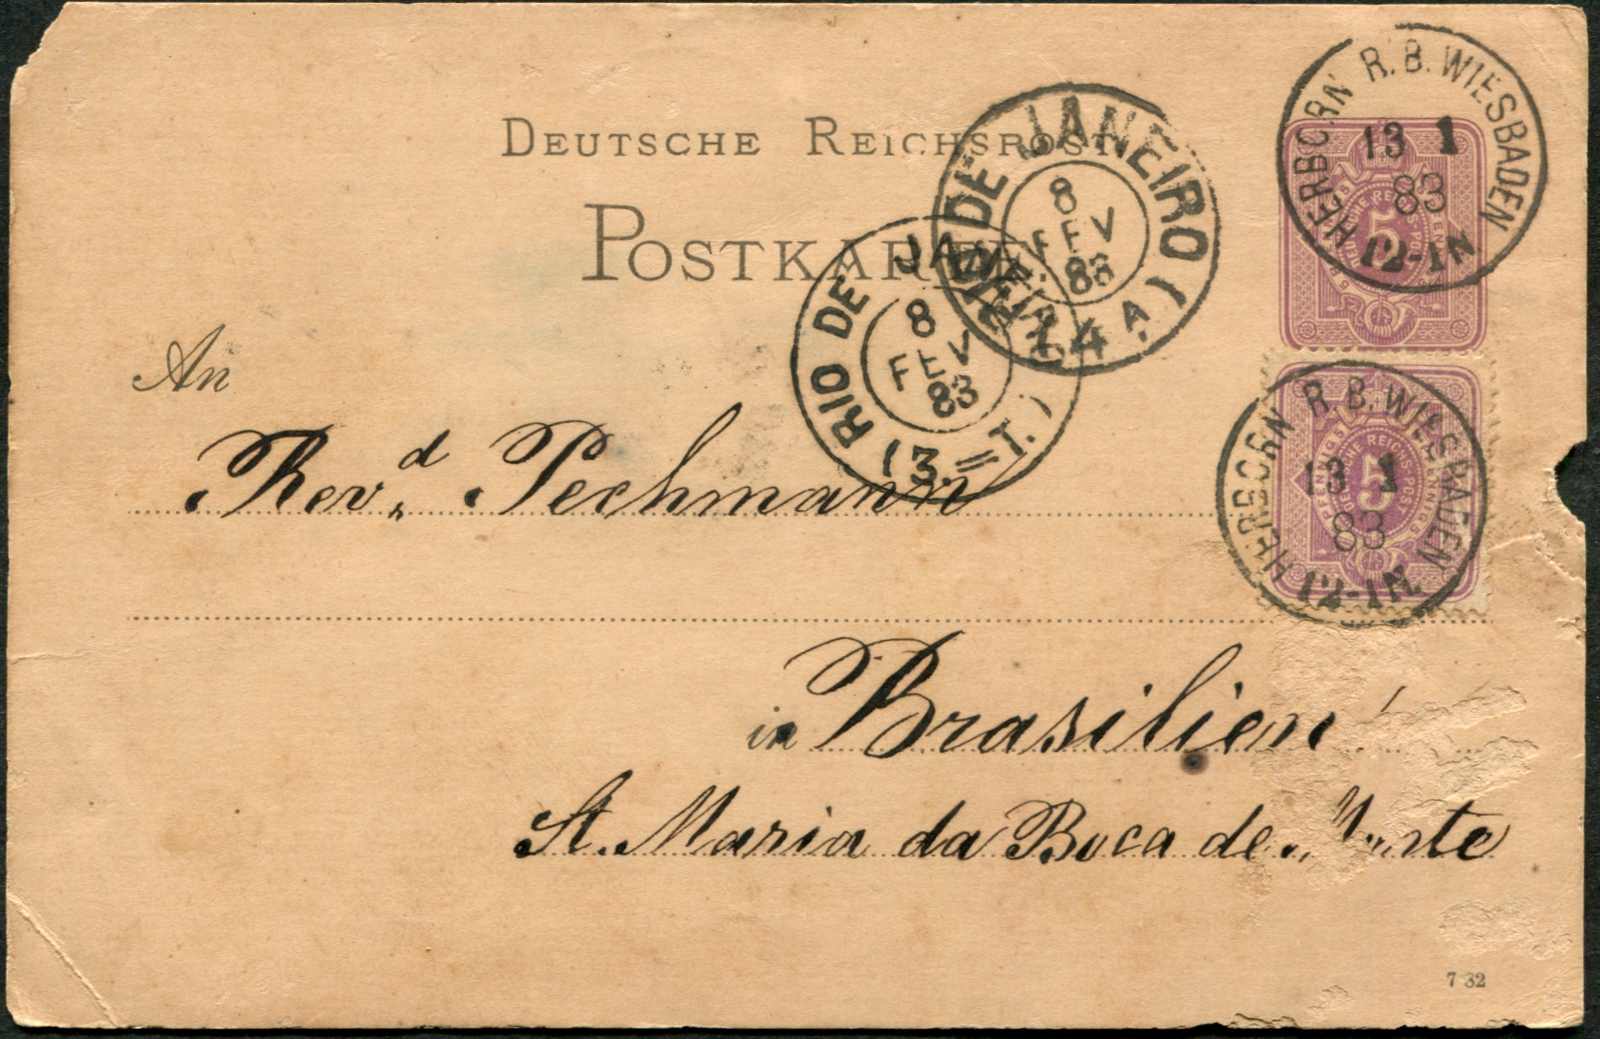 DEUTSCHE REICHSPOST
POSTKARTE
HERBORN R.B. WIESBADEN
13 1
83
12-1N
5
RIO DE JANEIRO
8
FEV
83
(3.=T.)
DE JANEIRO
8
FEV
83
(4A)
HERBORN R.B. WIESBADEN
13 1
83
12-1N.
5
An
Revd. Pechmann
in Brasilien
St. Maria da Boca de Monte
7 82